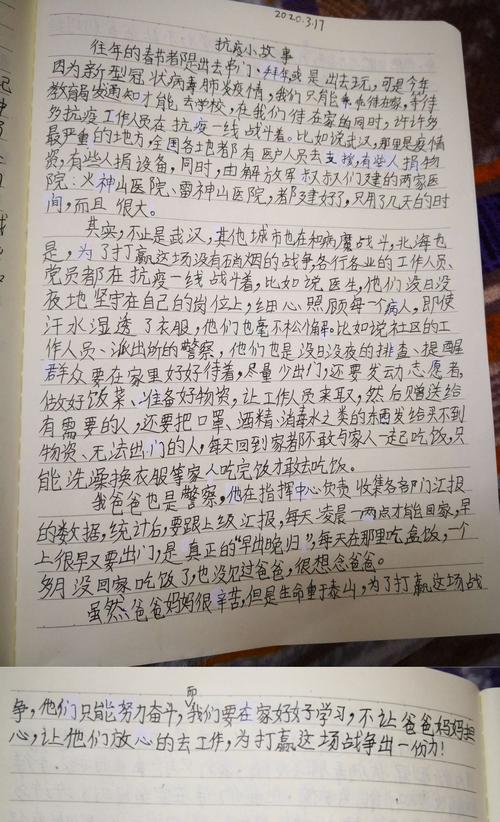 2020.3.17
抗疫小故事
往年的春节都是出去串门、拜年或是出去玩,可是今年
因为新型冠状病毒肺炎疫情,我们只能乖乖待在家,等待
教育局发通知才能去学校,在我们待在家的同时,许许多
多抗疫工作人员在抗疫一线战斗着。比如说武汉,那里是疫情
最严重的地方,全国各地都有医护人员去支援,有些人捐物
资,有些人捐设备,同时,由解放军叔叔们建的两家医
院:火神山医院、雷神山医院,都建好了,只用了几天的时
间,而且很大。
其实,不止是武汉,其他城市也在和病魔战斗,北海也
是,为了打赢这场没有硝烟的战争,各行各业的工作人员、
党员都在抗疫一线战斗着,比如说医生,他们没日没
夜地坚守在自己的岗位上,细心照顾每一个病人,即使
汗水湿透了衣服,他们也毫不松懈。比如说社区的工
作人员、派出所的警察,他们也是没日没夜的排查、提醒
群众要在家里好好待着,尽量少出门,还要发动志愿者,
做好饭菜、准备好物资,让工作人员来取,然后赠送给
有需要的人,还要把口罩、酒精、消毒水之类的东西发给买不到
物资、无法出门的人,每天回到家都不敢与家人一起吃饭,只
能洗澡换衣服等家人吃完饭才敢去吃饭。
我爸爸也是警察,他在指挥中心负责收集各部门汇报
的数据,统计后,要跟上级汇报,每天凌晨一两点才能回家,早
上很早又要出门,是真正的“早出晚归”,每天在那里吃盒饭,一个
多月没回家吃饭了,也没见过爸爸,很想念爸爸。
虽然爸爸妈妈很辛苦,但是生命重于泰山,为了打赢这场战
争,他们只能努力奋斗,而我们要在家好好学习,不让爸爸妈妈担
心,让他们放心的去工作,为打赢这场战争出一份力!